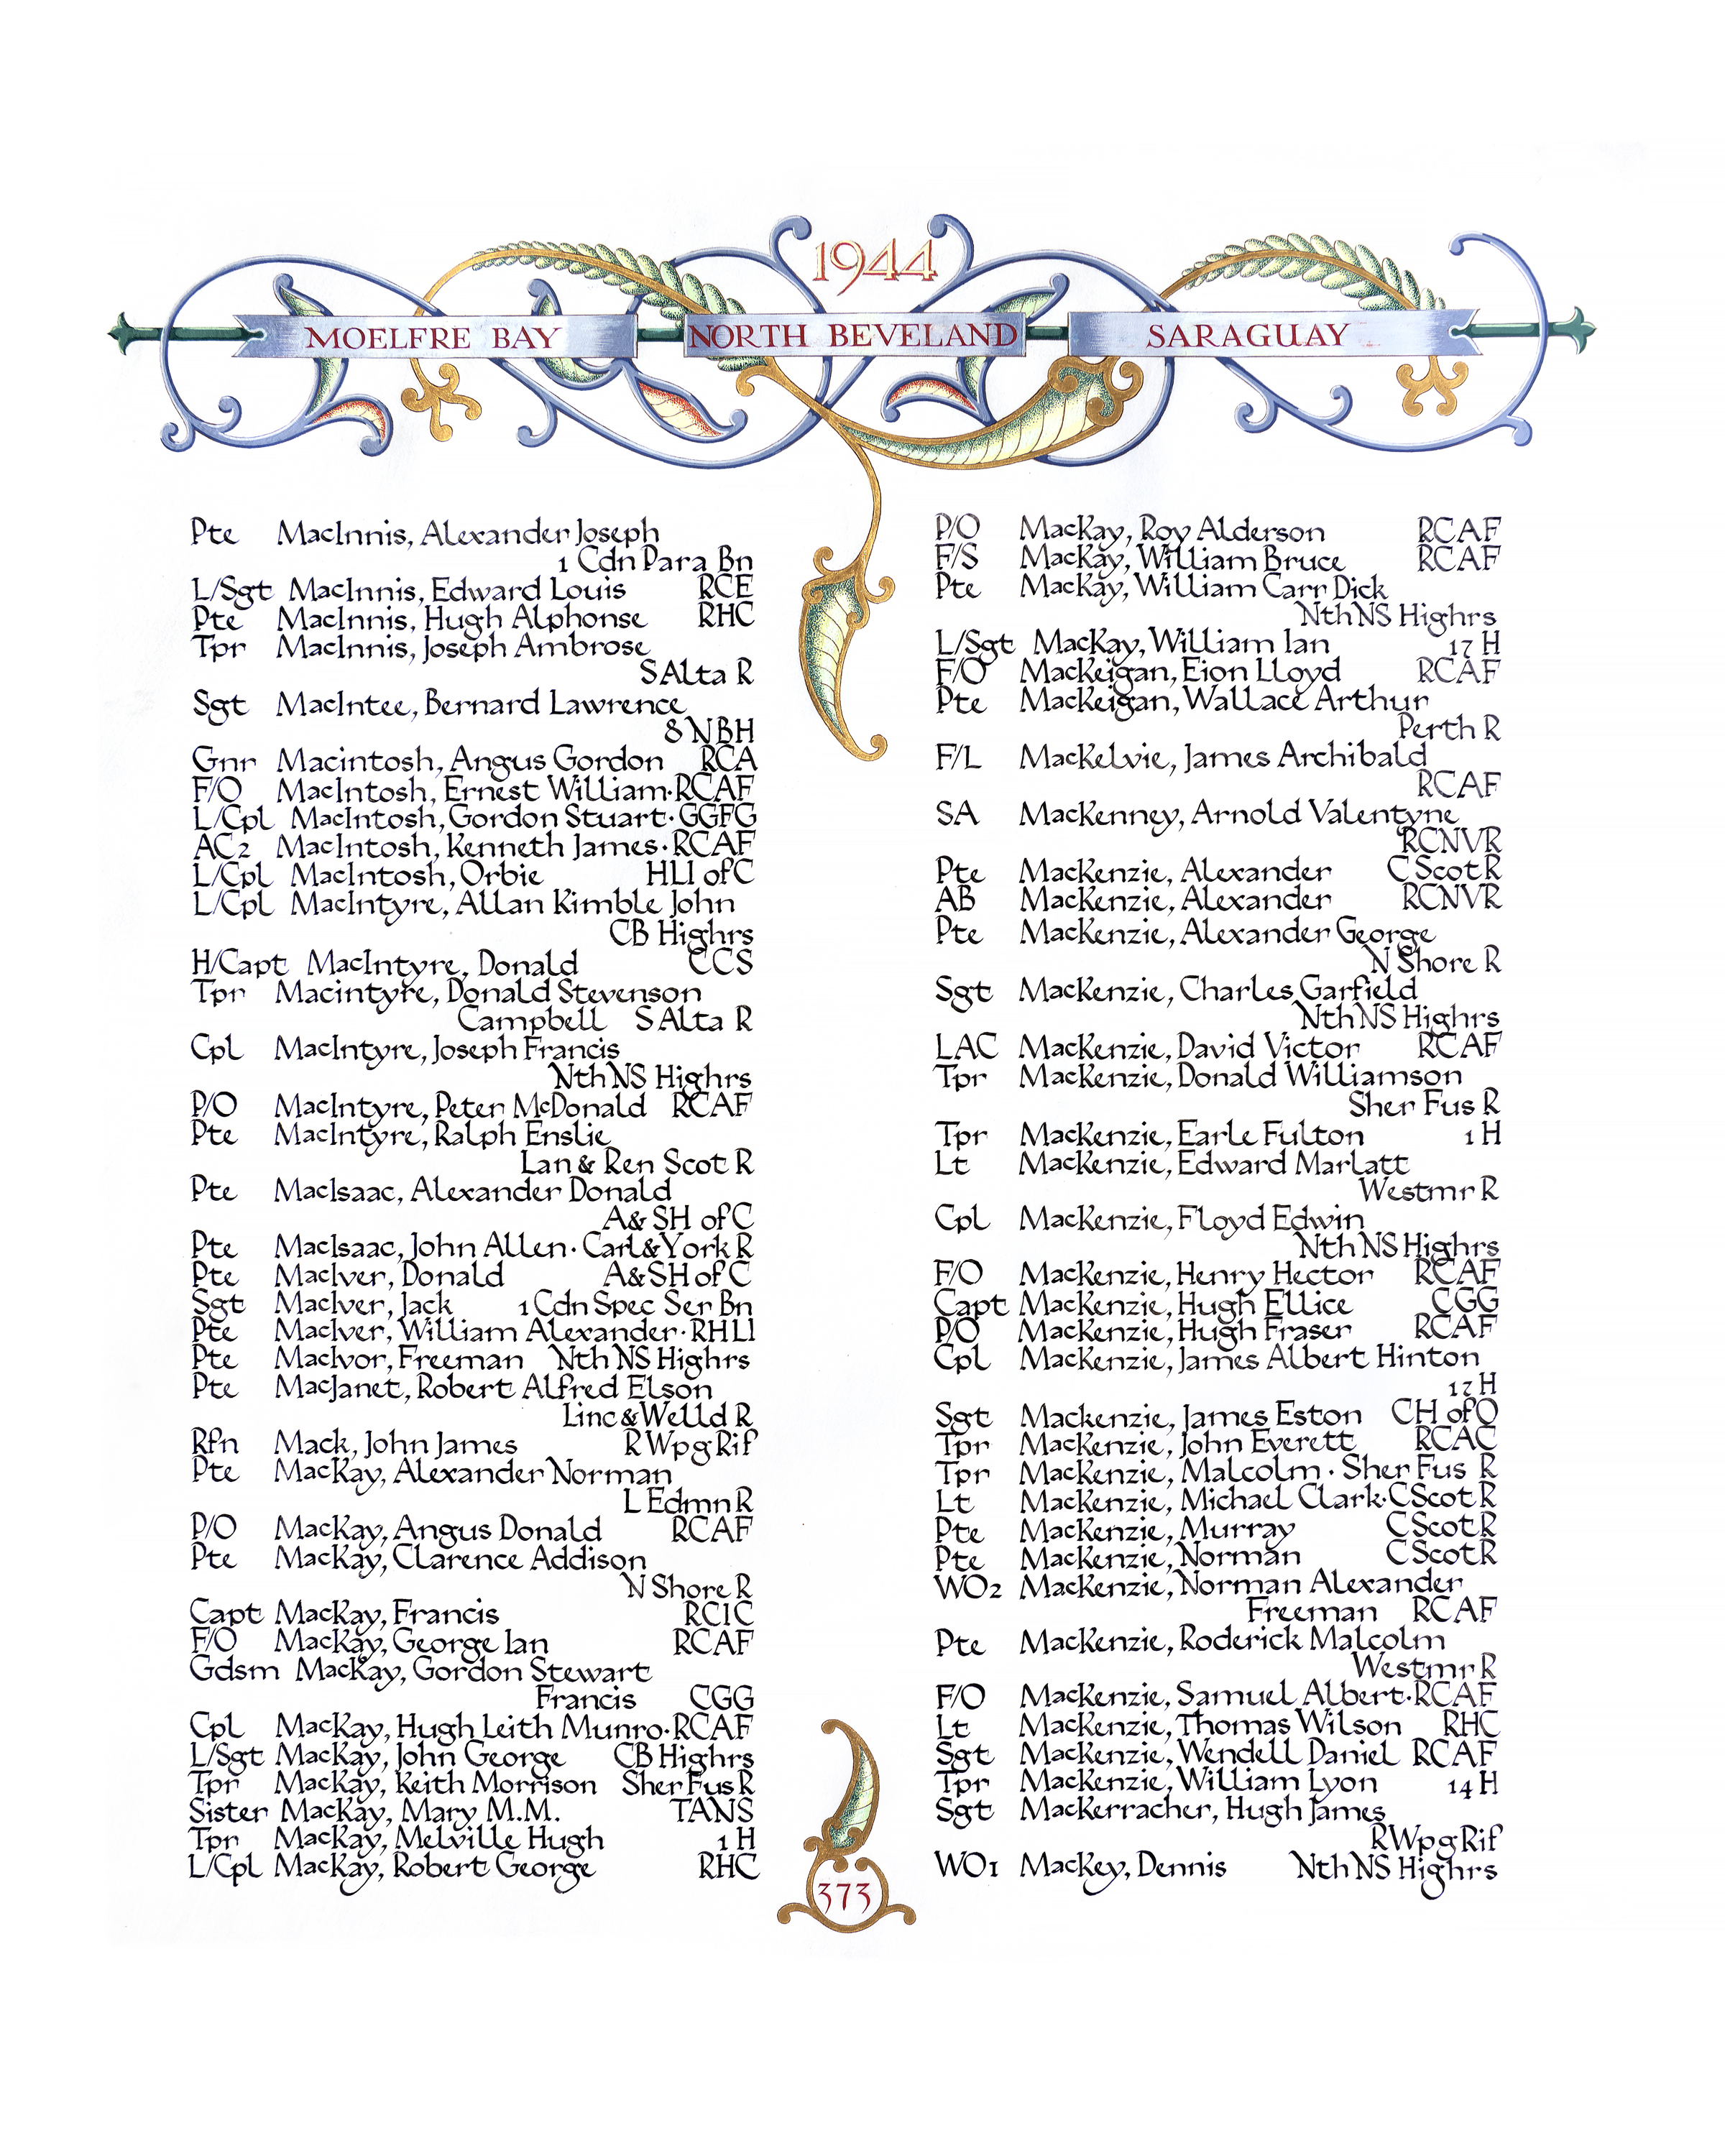 1944
MOELFRE BAY NORTH BEVELAND SARAGUAY
Pte MacInnis, Alexander Joseph
1 Cdn Para Bn
L/Sgt MacInnis, Edward Louis RCE
Pte MacInnis, Hugh Alphonse RHC
Tpr MacInnis, Joseph Ambrose
S Alta R
Sgt MacIntee, Bernard Lawrence
8 NBH
Gnr Macintosh, Angus Gordon RCA
F/O MacIntosh, Ernest William·RCAF
L/Cpl MacIntosh, Gordon Stuart·GGFG
AC2 MacIntosh, Kenneth James·RCAF
L/Cpl MacIntosh, Orbie HLI of C
L/Cpl MacIntyre, Allan Kimble John
CB Highrs
H/Capt MacIntyre, Donald CCS
Tpr Macintyre, Donald Stevenson
Campbell S Alta R
Cpl MacIntyre, Joseph Francis
Nth NS Highrs
P/O MacIntyre, Peter McDonald RCAF
Pte MacIntyre, Ralph Enslie
Lan & Ren Scot R
Pte MacIsaac, Alexander Donald
A & SH of C
Pte MacIsaac, John Allen· Carl & York R
Pte MacIver, Donald A & SH of C
Sgt MacIver, Jack 1 Cdn Spec Ser Bn
Pte MacIver, William Alexander·RHLI
Pte MacIvor, Freeman Nth NS Highrs
Pte MacJanet, Robert Alfred Elson
Linc & Welld R
Rfn Mack, John James R Wpg Rif
Pte MacKay, Alexander Norman
L Edmn R
P/O MacKay, Angus Donald RCAF
Pte MacKay, Clarence Addison
N Shore R
Capt MacKay, Francis RCIC
F/O MacKay, George Ian RCAF
Gdsm MacKay, Gordon Stewart
Francis CGG
Cpl MacKay, Hugh Leith Munro·RCAF
L/Sgt MacKay, John George CB Highrs
Tpr MacKay, Keith Morrison Sher Fus R
Sister MacKay, Mary M.M. TANS
Tpr MacKay, Melville Hugh 1 H
L/Cpl MacKay, Robert George RHC
P/O MacKay, Roy Alderson RCAF
F/S MacKay, William Bruce RCAF
Pte MacKay, William Carr Dick
Nth NS Highrs
L/Sgt MacKay, William Ian 17 H
F/O MacKeigan, Eion Lloyd RCAF
Pte MacKeigan, Wallace Arthur
Perth R
F/L MacKelvie, James Archibald
RCAF
SA MacKenney, Arnold Valentyne
RCNVR
Pte MacKenzie, Alexander C Scot R
AB MacKenzie, Alexander RCNVR
Pte MacKenzie, Alexander George
N Shore R
Sgt MacKenzie, Charles Garfield
Nth NS Highrs
LAC MacKenzie, David Victor RCAF
Tpr MacKenzie, Donald Williamson
Sher Fus R
Tpr MacKenzie, Earle Fulton 1 H
Lt MacKenzie, Edward Marlatt
Westmr R
Cpl MacKenzie, Floyd Edwin
Nth NS Highrs
F/O MacKenzie, Henry Hector RCAF
Capt MacKenzie, Hugh Ellice CGG
P/O MacKenzie, Hugh Fraser RCAF
Cpl MacKenzie, James Albert Hinton
17 H
Sgt Mackenzie, James Eston CH of O
Tpr MacKenzie, John Everett RCAC
Tpr MacKenzie, Malcolm· Sher Fus R
Lt MacKenzie, Michael Clark·C Scot R
Pte MacKenzie, Murray C Scot R
Pte MacKenzie, Norman C Scot R
WO2 MacKenzie, Norman Alexander
Freeman RCAF
Pte MacKenzie, Roderick Malcolm
Westmr R
F/O MacKenzie, Samuel Albert·RCAF
Lt MacKenzie, Thomas Wilson RHC
Sgt MacKenzie, Wendell Daniel RCAF
Tpr MacKenzie, William Lyon 14 H
Sgt MacKerracher, Hugh James
R Wpg Rif
WO1 MacKey, Dennis Nth NS Highrs
373